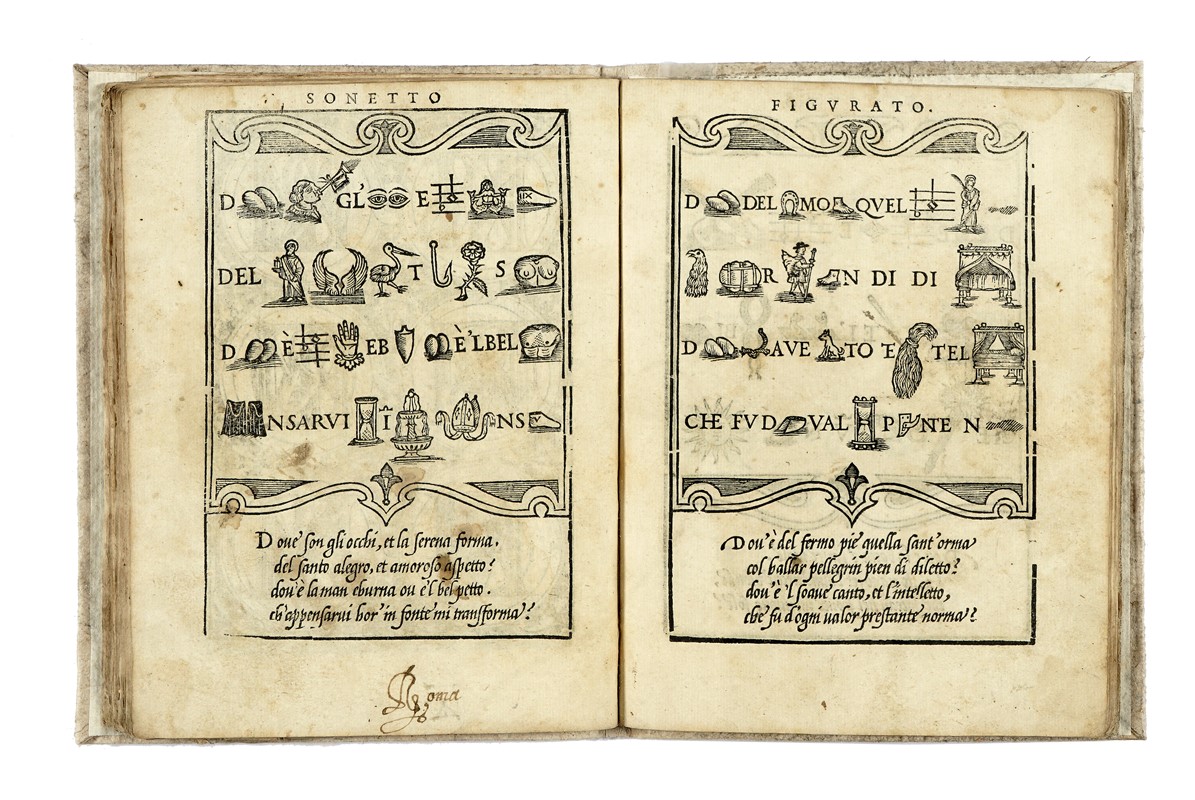 SONETTO
D GL' E
DEL T S
D È EB È'LBEL
NSARVI I NS
D oue son gli occhi, et la serena forma.
del santo alegro, et amoroso aspetto?
dou'è la man eburna ou è'l bel petto.
ch'appensarui hor' in fonte mi transforma?
Roma
FIGVRATO.
D DEL MO QVEL
R N DI DI
D AVE TO E TEL
CHE FV D VAL P NTE N
Dou'è del fermo piè quella sant'orma
col ballar pellegrin pien di diletto?
dou'è 'l soaue canto, et l'intelletto,
che fu d'ogni ualor prestante norma?